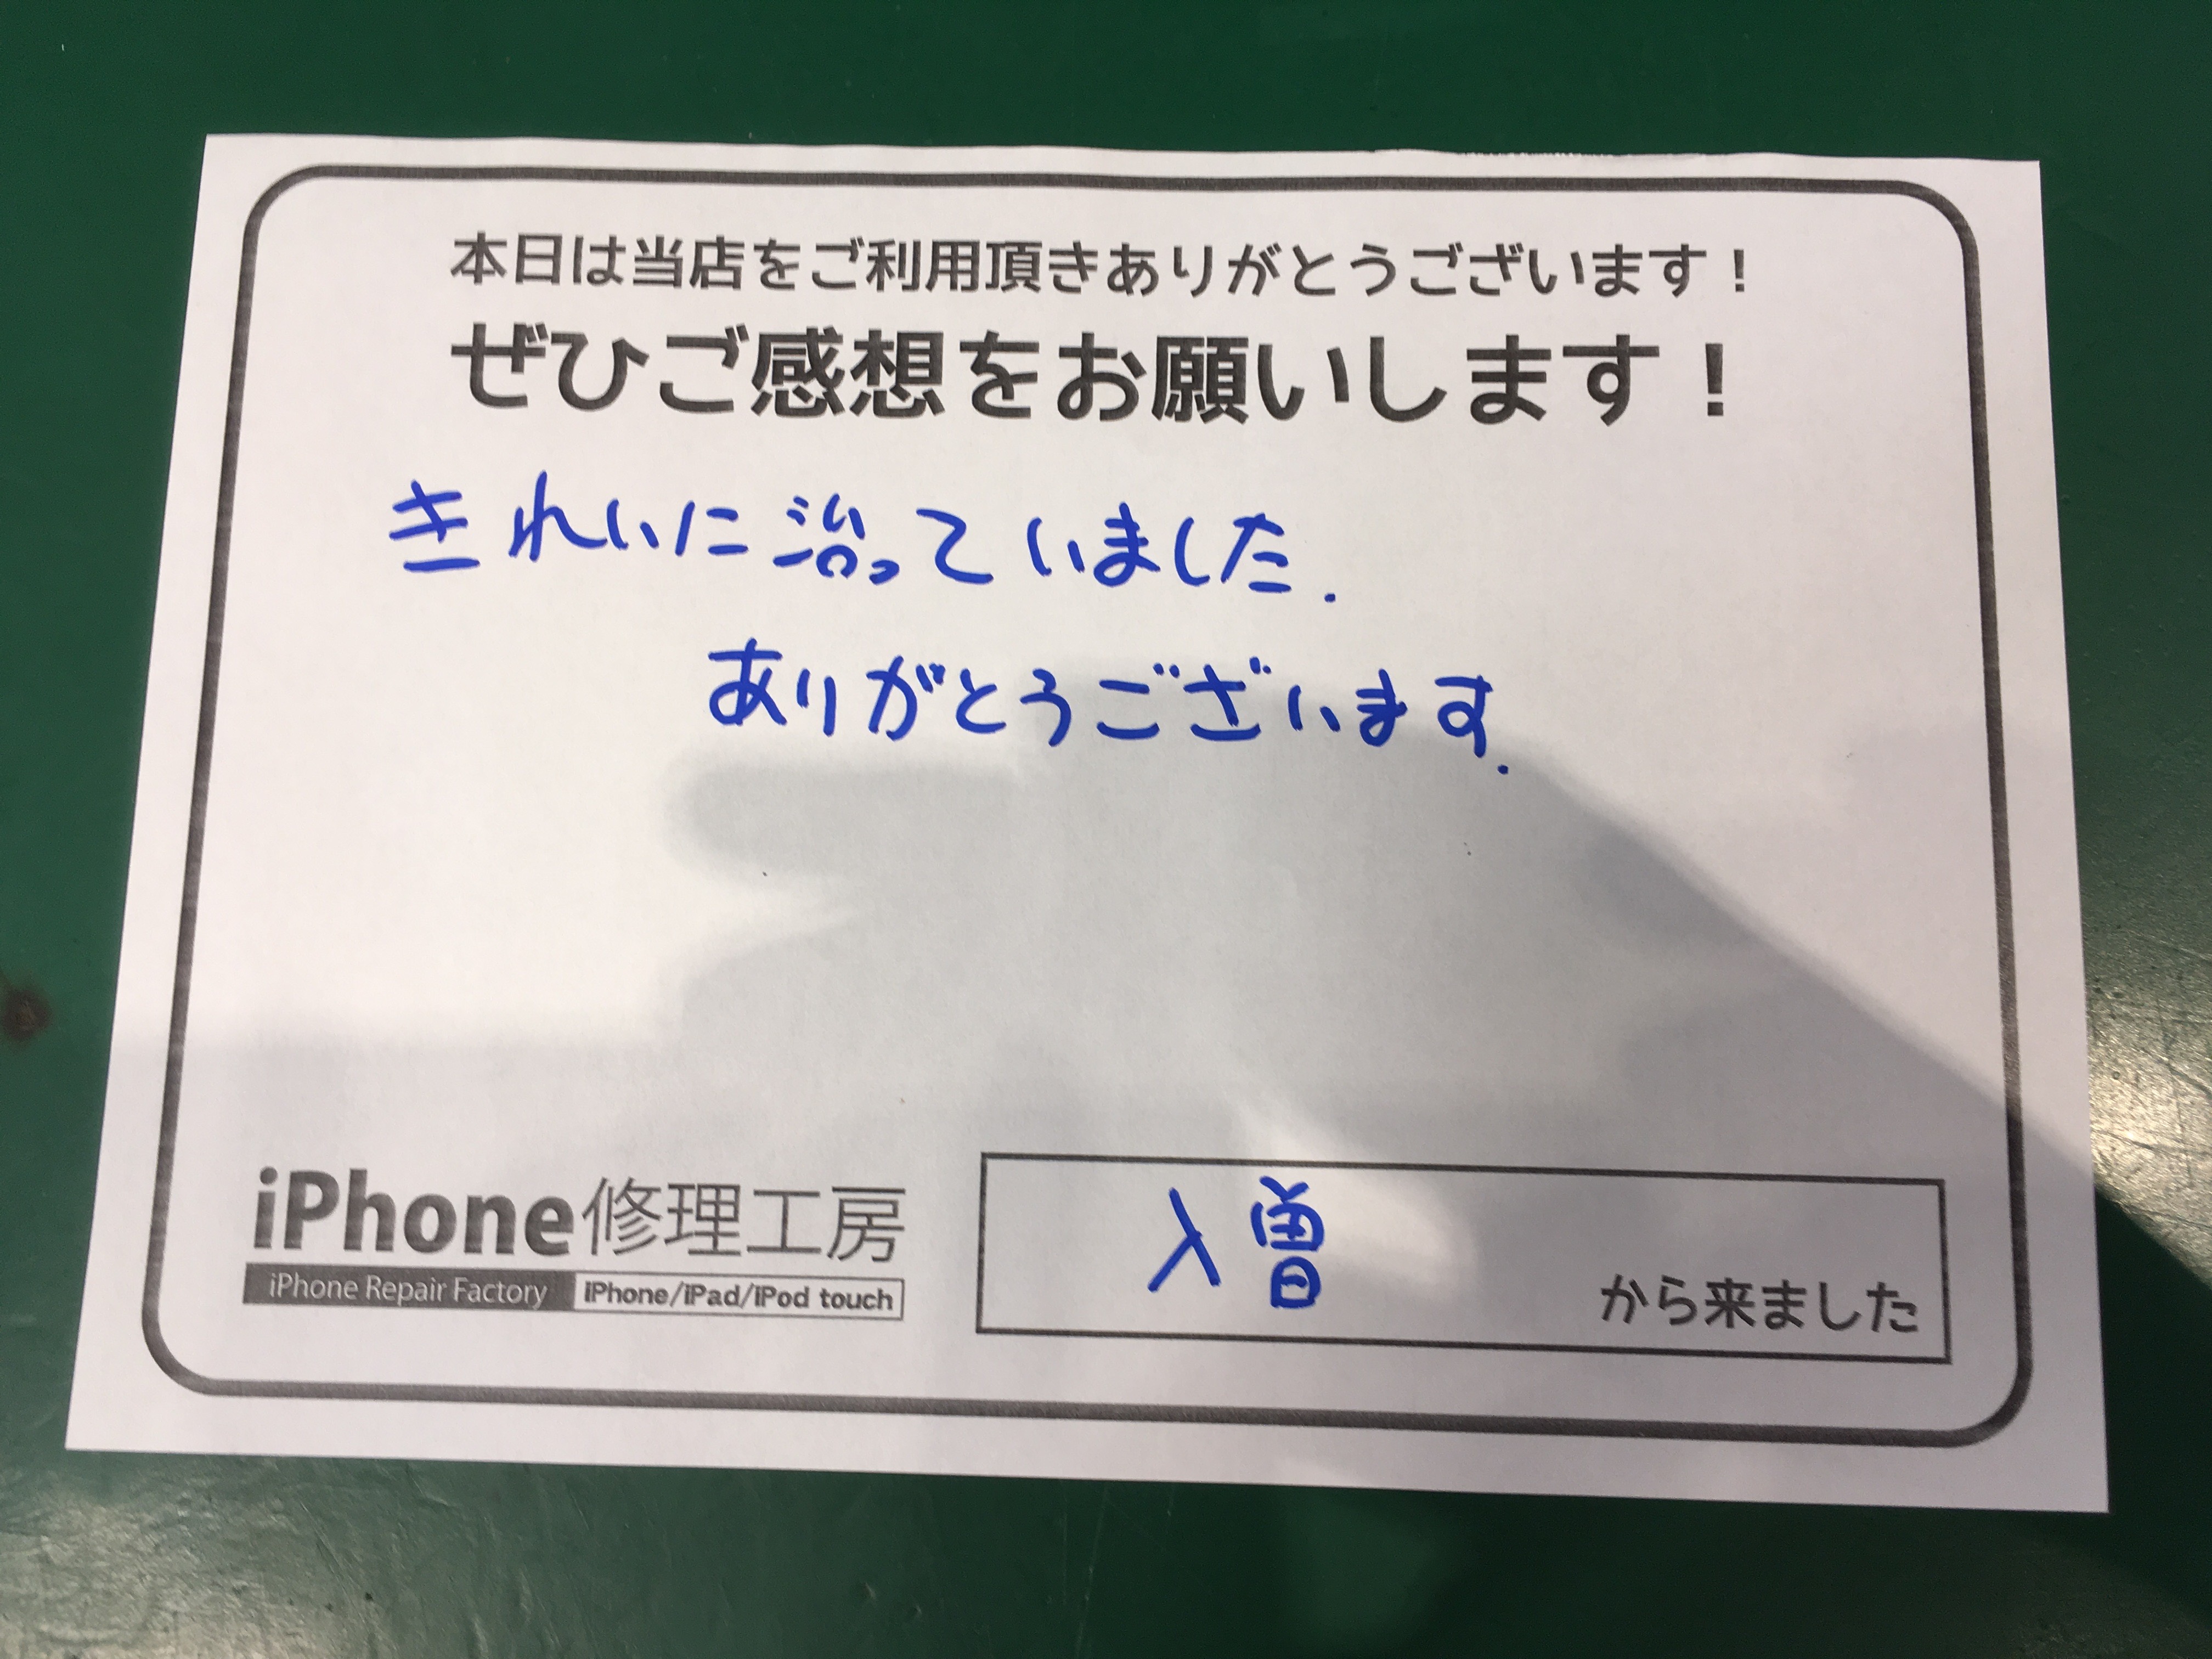 本日は当店をご利用頂きありがとうございます！
ぜひご感想をお願いします！
きれいに治っていました.
ありがとうございます.
iPhone修理工房
iPhone Repair Factory iPhone/iPad/iPod touch
入曽
から来ました